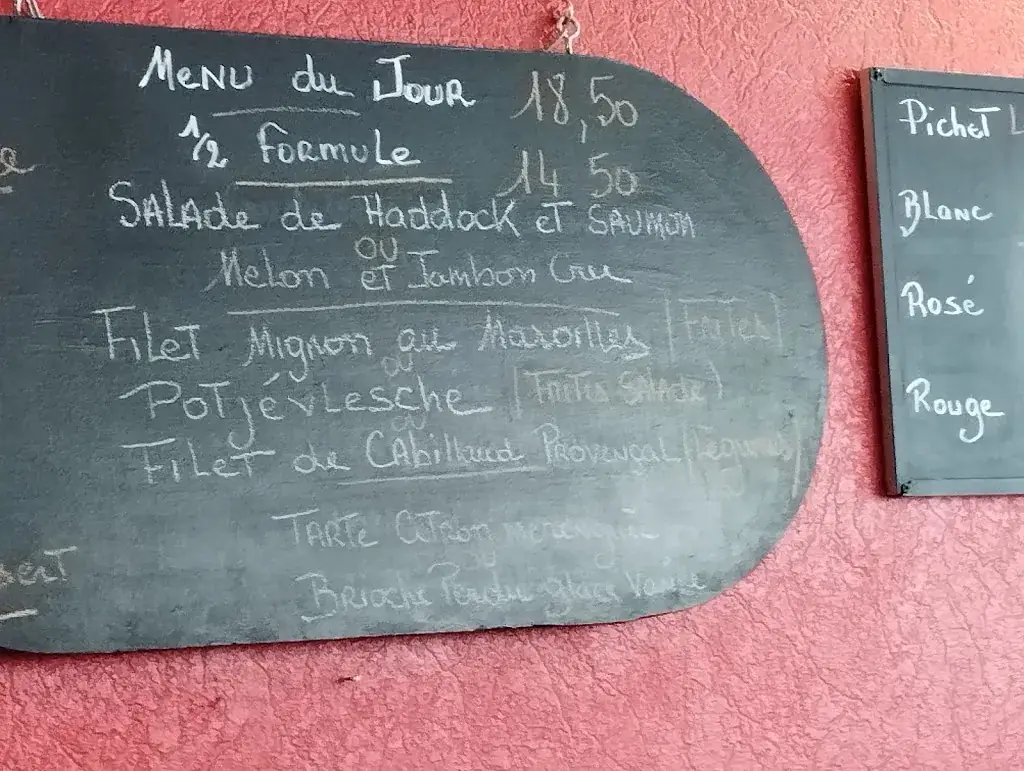 Menu du Jour 18,50
1/2 Formule 14 50
Salade de Haddock et Saumon
ou
Melon et Jambon Cru
Filet Mignon au Maroilles (Frites)
ou
Potjévlesche (Frites Salade)
ou
Filet de Cabillaud Provençal (Légumes)
Tarte Citron meringuée
Brioche Perdu glace Vanille
Pichet L
Blanc
Rosé
Rouge